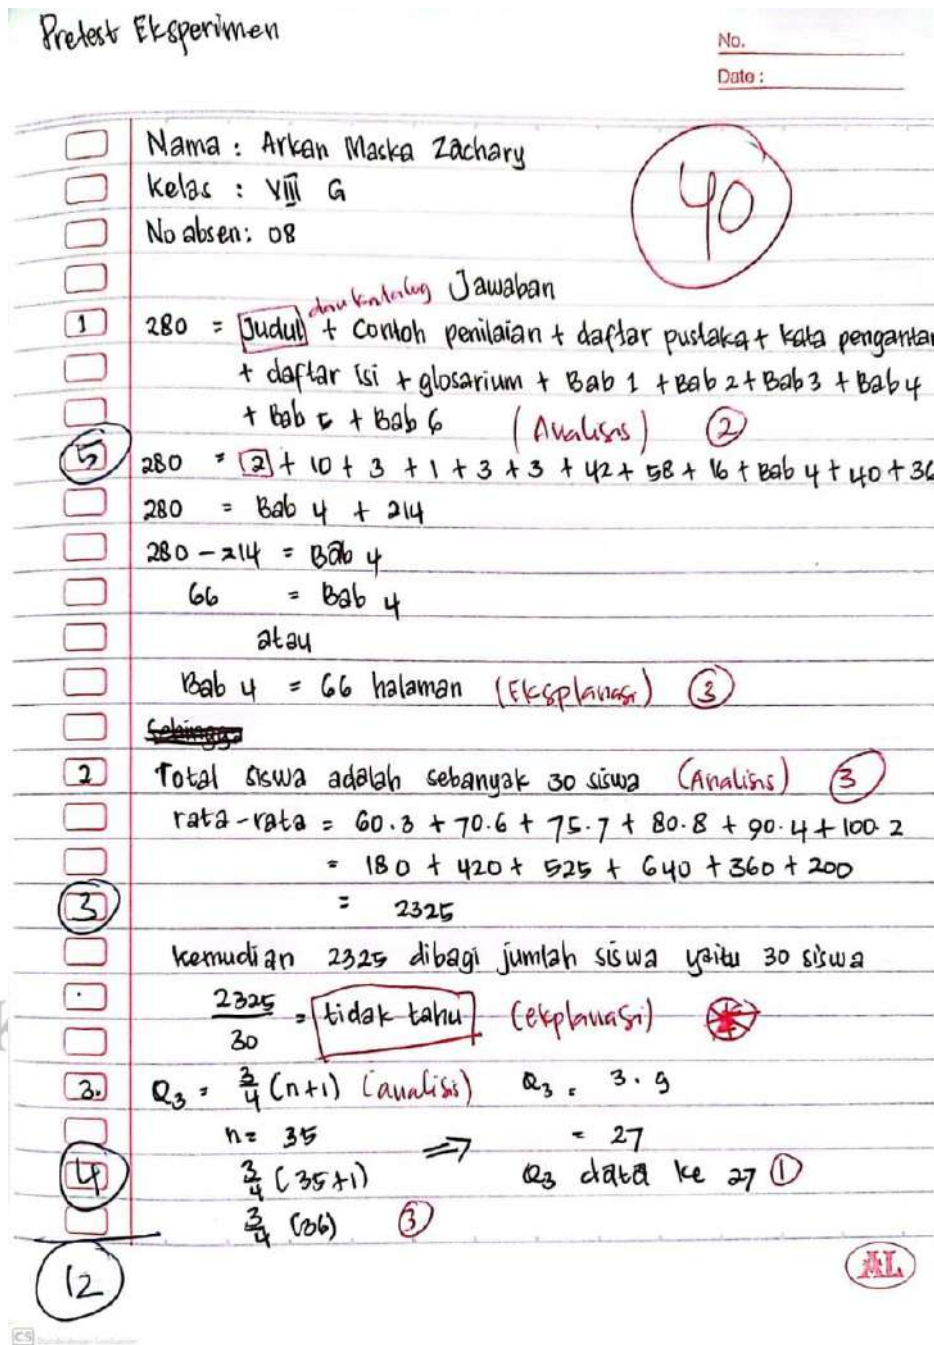 Pretest Eksperimen
No.
Date :
Nama : Arkan Maska Zachary
40
Kelas : VIII G
No absen : 08
Jawaban
dan katalog
1 280 = Judul + Contoh penilaian + daftar pustaka + kata pengantar
+ daftar isi + glosarium + Bab 1 + Bab 2 + Bab 3 + Bab 4
+ Bab 5 + Bab 6 (Analisis) 2
5 280 = 2 + 10 + 3 + 1 + 3 + 3 + 42 + 58 + 16 + Bab 4 + 40 + 36
280 = Bab 4 + 214
280 - 214 = Bab 4
66 = Bab 4
atau
Bab 4 = 66 halaman (Eksplanasi) 3
Sehingga
2 Total siswa adalah sebanyak 30 siswa (Analisis) 3
rata-rata = 60.3 + 70.6 + 75.7 + 80.8 + 90.4 + 100.2
= 180 + 420 + 525 + 640 + 360 + 200
3 = 2325
kemudian 2325 dibagi jumlah siswa yaitu 30 siswa
2325/30 = tidak tahu (ekplanasi)
3. Q3 = 3/4 (n+1) (analisis) Q3 = 3.9
n = 35 ⇒ = 27
4 3/4 (35+1) Q3 data ke 27 1
3/4 (36) 3
12
AL
CS